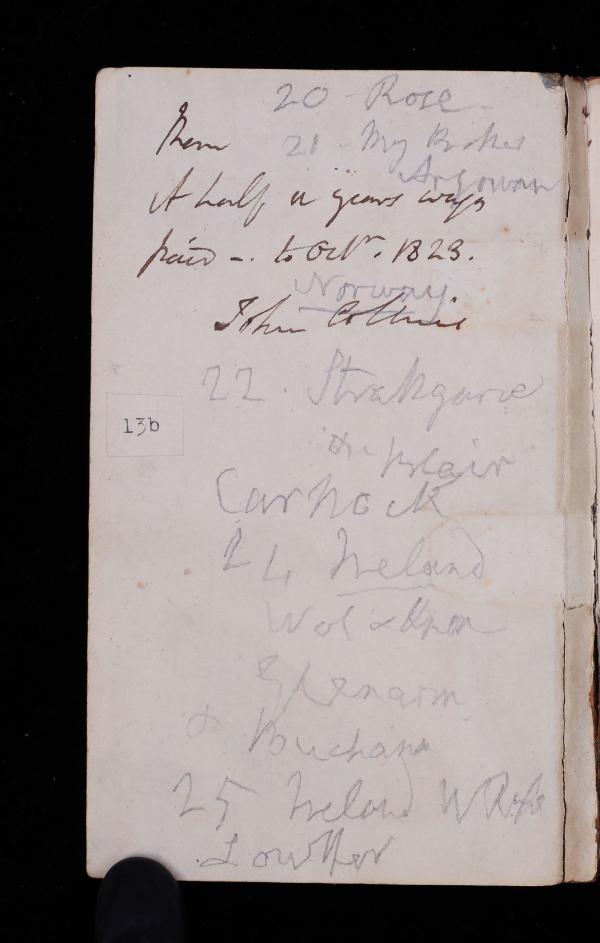 20 - Rose
Mem 21 - My Brother
Argowan
A half a years wages
paid - . to Octr. 1823.
Norway
John Collins
22 . Strathgarve
Dr Blair
13b
Carnock
24 Ireland
Glenarm
& Buchans
25 Ireland W
Lowther